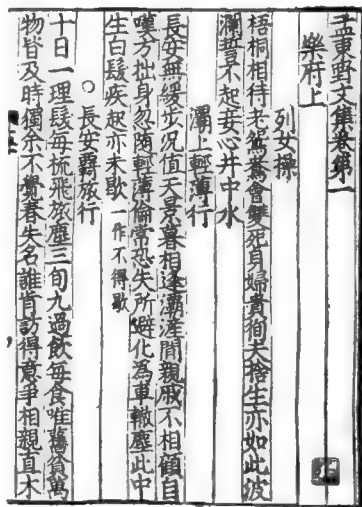 孟東野文集卷第一
樂府上
列女操
梧桐相待老鴛鴦會雙死貞婦貴徇夫捨生亦如此波
瀾誓不起妾心井中水
灞上輕薄行
長安無緩步况值天景暮相逢灞滻間親戚不相顧自
嘆方拙身忽隨輕薄倫常恐失所避化為車轍塵此中
生白髮疾起亦未歇一作不得歇
○長安羇旅行
十日一理髮每梳飛旅塵三旬九過飲每食唯舊貧萬
物皆及時獨余不覺春失名誰肯訪得意爭相親直木